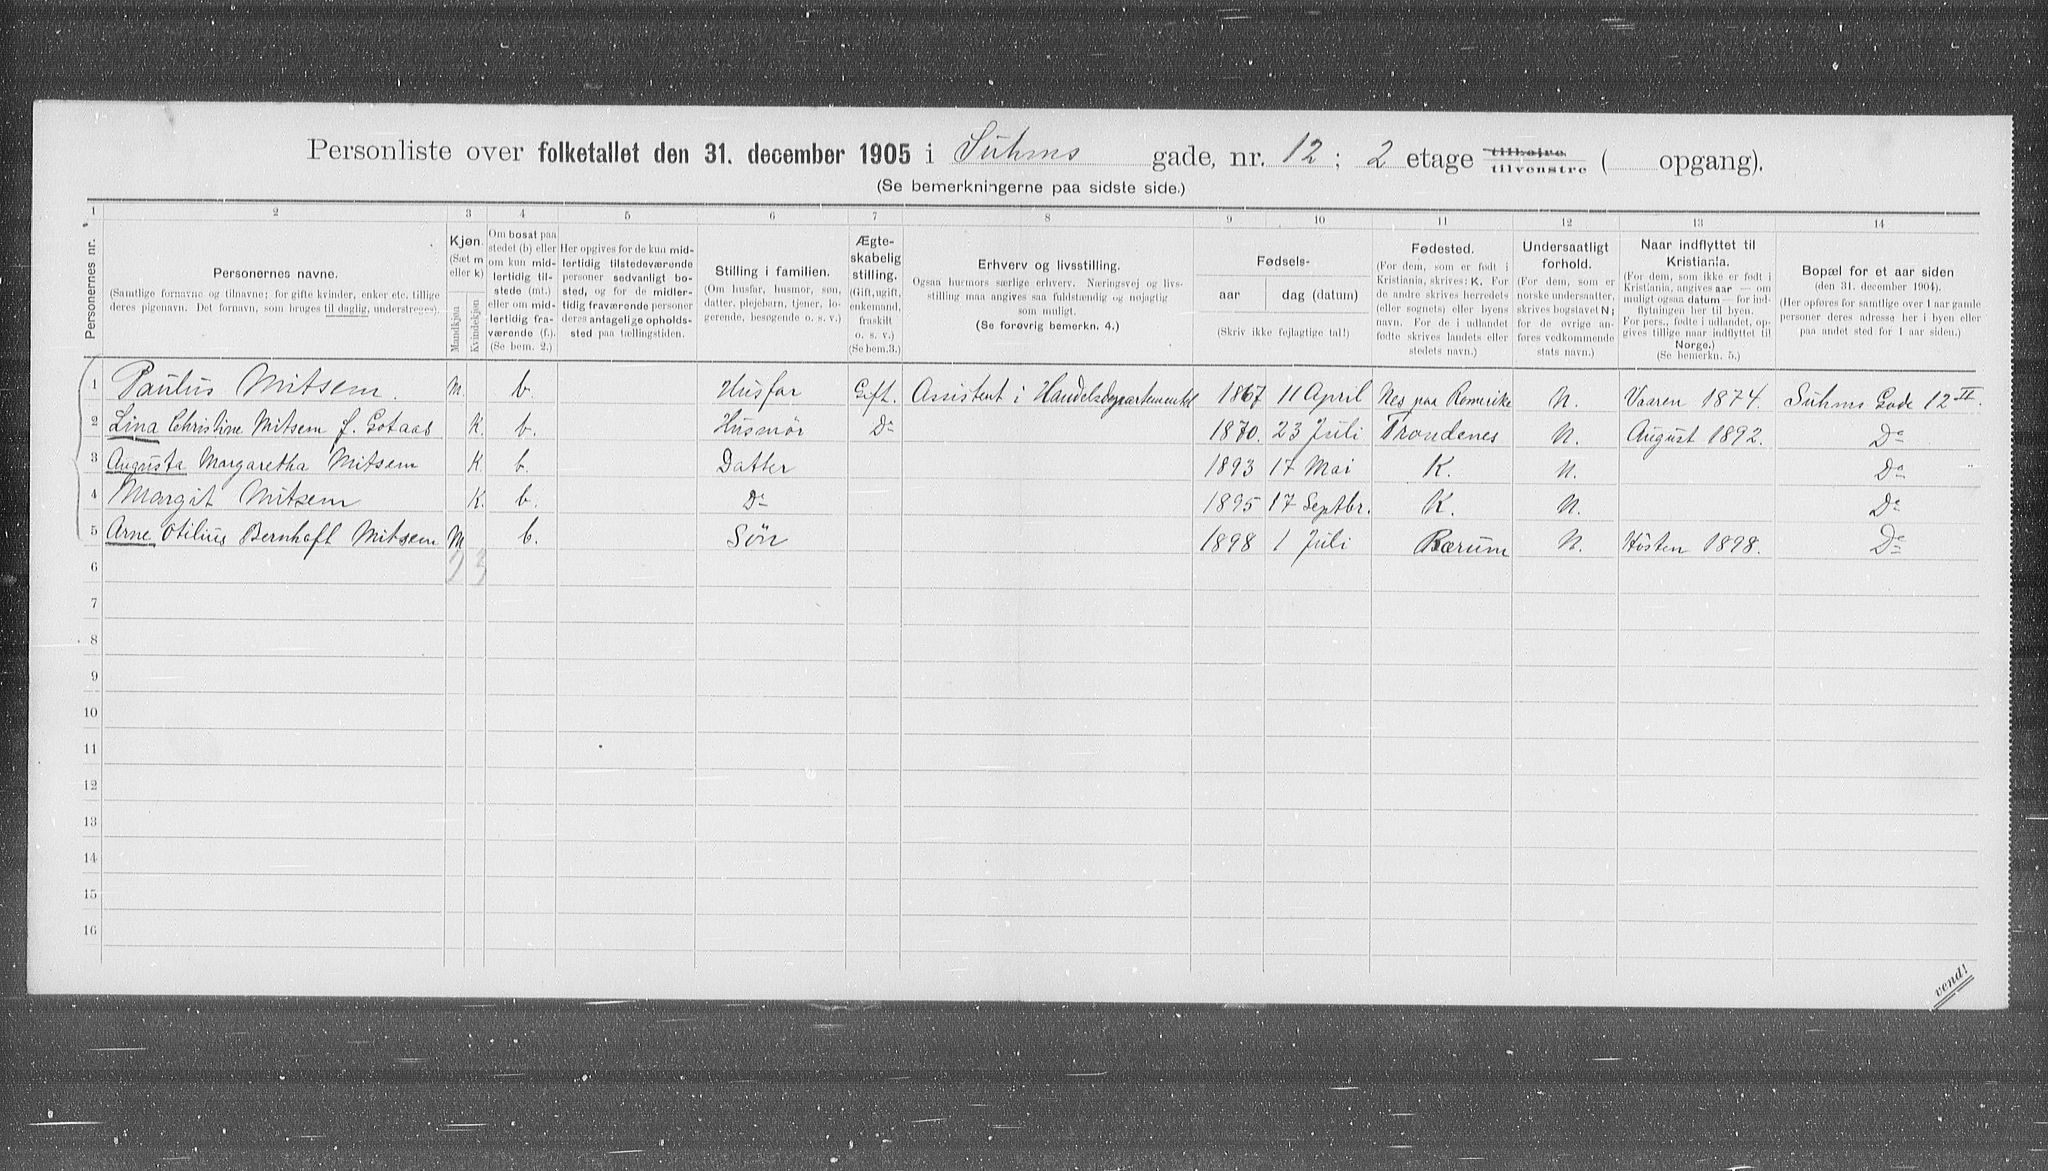 Personliste over folketallet den 31. december 1905 i Suhms gade, nr. 12; 2 etage tilhøire tilvenstre ( opgang).
(Se bemerkningerne paa sidste side.)
1 2 3 4 5 6 7 8 9 10 11 12 13 14
Personernes nr.
Personernes navne.
(Samtlige fornavne og tilnavne; for gifte kvinder, enker etc. tillige
deres pigenavn. Det fornavn, som bruges til daglig, understreges).
Kjøn.
(Sæt m
eller k)
Mandkjøn
Kvindekjøn
Om bosat paa
stedet (b) eller
om kun mid-
lertidig til-
stede (mt.)
eller om mid-
lertidig fra-
værende (f.).
(Se bem. 2.)
Her opgives for de kun mid-
lertidig tilstedeværende
personer sedvanligt bo-
sted, og for de midler-
tidig fraværende personer
deres antagelige opholds-
sted paa tællingstiden.
Stilling i familien.
(Om husfar, husmor, søn,
datter, plejebarn, tjener, lo-
gerende, besøgende o. s. v.)
Ægte-
skabelig
stilling.
(Gift, ugift,
enkemand,
fraskilt
o. s. v.)
(Se bem.3.)
Erhverv og livsstilling.
Ogsaa husmors særlige erhverv. Næringsvej og livs-
stilling maa angives saa fuldstændig og nøjagtig
som muligt.
(Se forøvrig bemerkn. 4.)
Fødsels-
aar
dag (datum)
(Skriv ikke fejlagtige tal!)
Fødested.
(For dem, som er født i
Kristiania, skrives: K. For
de andre skrives herredets
(eller sognets) eller byens
navn. For de i udlandet
fødte skrives landets eller
stedets navn.)
Undersaatligt
forhold.
(For dem, som er
norske undersaatter,
skrives bogstavet N;
for de øvrige an-
føres vedkommende
stats navn.)
Naar indflyttet til
Kristiania.
(For dem, som ikke er født i
Kristiania, angives aar — om
muligt ogsaa datum — for ind-
flytningen her til byen.
For pers., fødte i udlandet, op-
gives tillige naar indflyttet til
Norge.)
(Se bemerkn. 5.)
Bopæl for et aar siden
(den 31. december 1904).
(Her opføres for samtlige over 1 aar gamle
personer deres adresse her i byen eller
paa andet sted for 1 aar siden.)
1 Paulus Mitsem. M. b. Husfar Gift. Assistent i Handelsdepartementet 1867 11 April Nes paa Romerike N. Vaaren 1874. Suhms Gade 12 II.
2 Lina Christine Mitsem f. Gotaas K. b. Husmor Do 1870. 23 Juli Trondenes N. August 1892. Do
3 Augusta Margaretha Mitsem K. b. Datter 1893 17 Mai K. N. Do
4 Margit Mitsem K. b. Do 1895 17 Septbr. K. N. Do
5 Arne Otilius Bernhoft Mitsem M b. Søn 1898 1 Juli Bærum N. Høsten 1898. Do
6 2 3
7
8
9
10
11
12
13
14
15
16
vend!